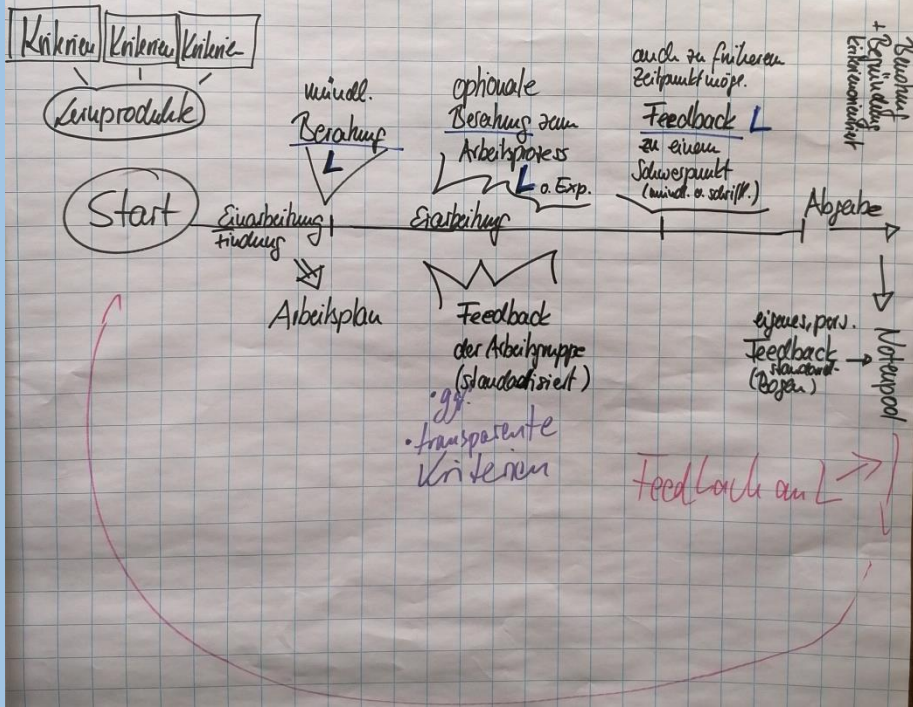 Kriterien Kriterien Kriterie
Lernprodukte
mündl.
Beratung
L
optionale
Beratung zum
Arbeitsprozess
L o. Exp.
auch zu früherem
Zeitpunkt mögl.
Feedback L
zu einem
Schwerpunkt
(mündl. o. schriftl.)
Benotung
+ Begründung
kriterienorientiert
Start
Einarbeitung
findung
Erarbeitung
Abgabe
Arbeitsplan
Feedback
der Arbeitsgruppe
(standardisiert)
• ggf.
• transparente
Kriterien
eigenes, pers.
Feedback
standard.
(Bogen)
Notenpool
Feedback an L